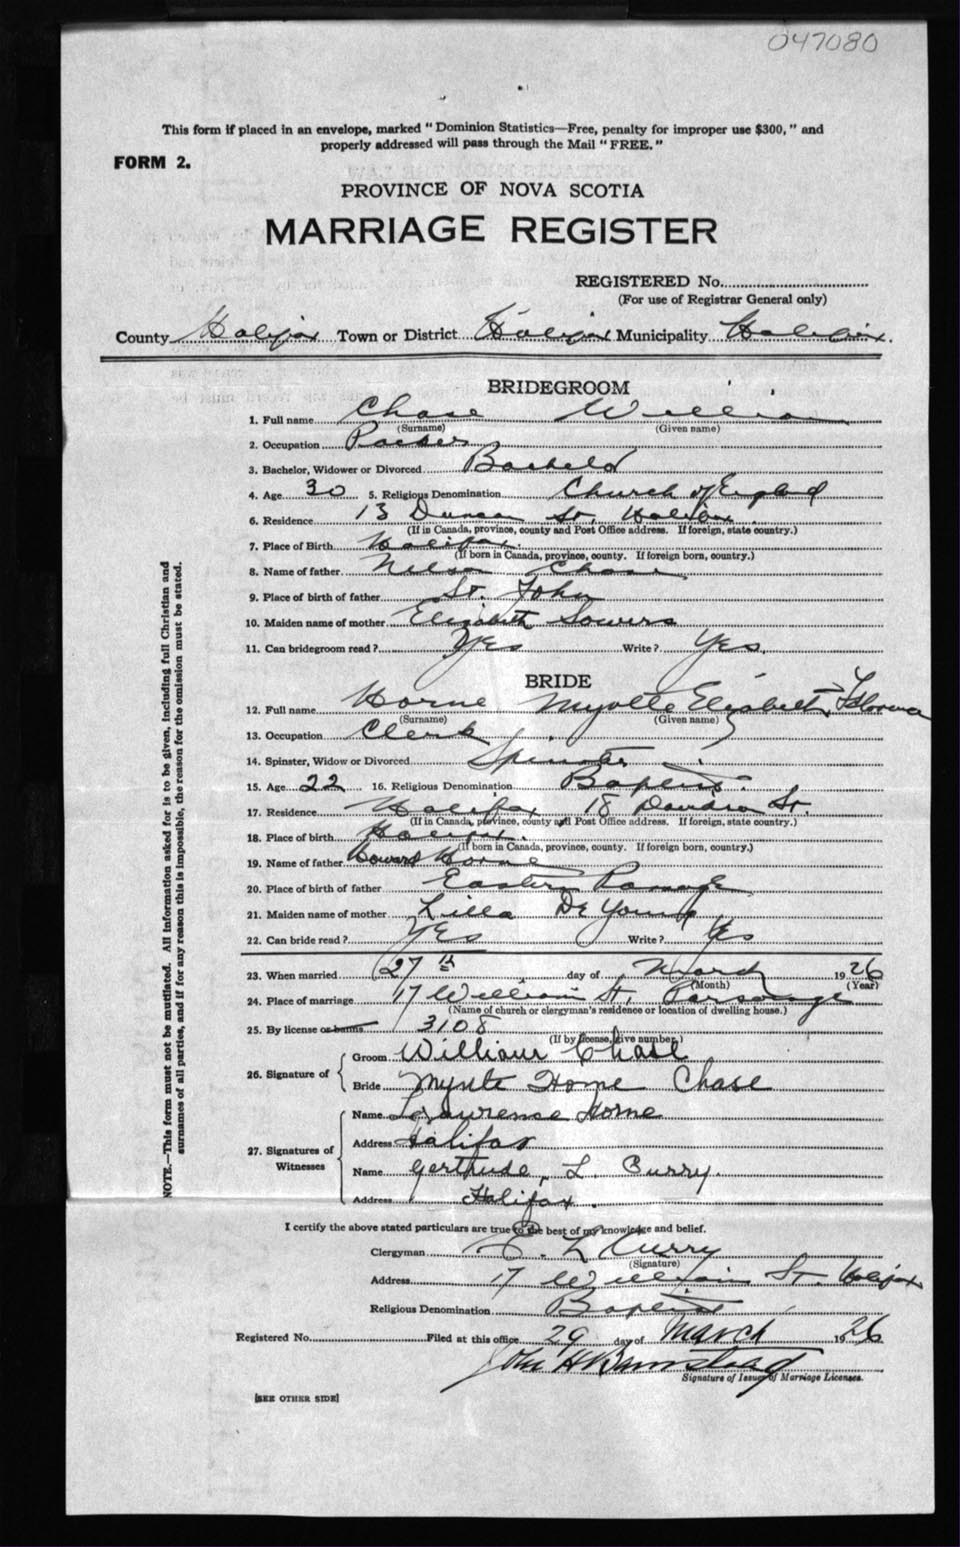 047080
This form if placed in an envelope, marked "Dominion Statistics—Free, penalty for improper use $300," and
properly addressed will pass through the Mail "FREE."
FORM 2.
PROVINCE OF NOVA SCOTIA
MARRIAGE REGISTER
REGISTERED No.
(For use of Registrar General only)
County Halifax Town or District Halifax Municipality Halifax.
BRIDEGROOM
1. Full name Chase William
(Surname) (Given name)
2. Occupation
3. Bachelor, Widower or Divorced Bachelor
4. Age 30 5. Religious Denomination Church of England
6. Residence 13 Duncan St, Halifax
(If in Canada, province, county and Post Office address. If foreign, state country.)
7. Place of Birth Halifax.
(If born in Canada, province, county. If foreign born, country.)
8. Name of father Nelson Chase
9. Place of birth of father St. John
10. Maiden name of mother Elizabeth Sowers
11. Can bridegroom read? Yes Write? Yes.
BRIDE
12. Full name Horne Myrtle Elizabeth Florence
(Surname) (Given name)
13. Occupation Clerk
14. Spinster, Widow or Divorced Spinster
15. Age 22 16. Religious Denomination Baptist.
17. Residence Halifax 18 Davison St.
(If in Canada, province, county and Post Office address. If foreign, state country.)
18. Place of birth Halifax.
(If born in Canada, province, county. If foreign born, country.)
19. Name of father Howard Horne
20. Place of birth of father Eastern Passage
21. Maiden name of mother Lilla De Young
22. Can bride read? Yes Write? Yes
23. When married 27th day of March 1926
(Month) (Year)
24. Place of marriage 17 William St, Parsonage
(Name of church or clergyman's residence or location of dwelling house.)
25. By license or banns 3108
(If by license, give number.)
26. Signature of
Groom William Chase
Bride Myrtle Horne Chase
27. Signatures of Witnesses
Name Lawrence Horne
Address Halifax
Name Gertrude L. Curry.
Address Halifax.
I certify the above stated particulars are true to the best of my knowledge and belief.
Clergyman L Curry
(Signature)
Address 17 William St. Halifax
Religious Denomination Baptist
Registered No. Filed at this office 29 day of March 1926
John H Barnstead
Signature of Issuer of Marriage Licenses.
[SEE OTHER SIDE]
NOTE.—This form must not be mutilated. All information asked for is to be given, including full Christian and
surnames of all parties, and if for any reason this is impossible, the reason for the omission must be stated.